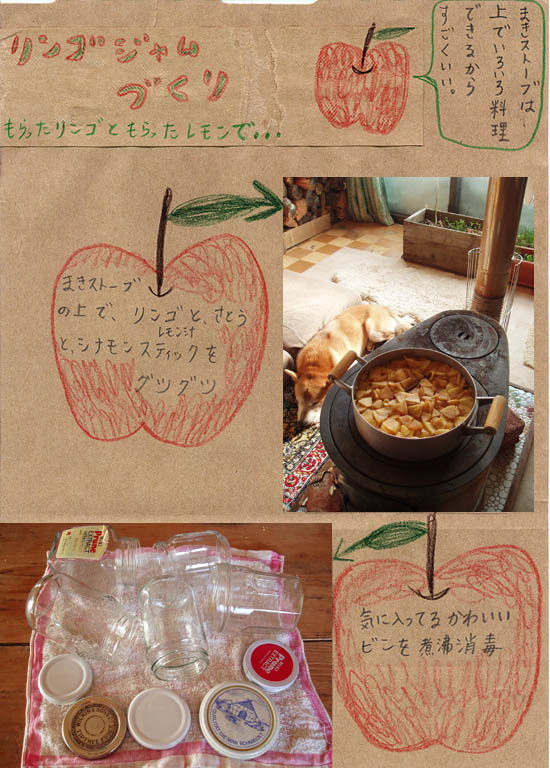 リンゴジャム
づくり
もらったリンゴともらったレモンで...
まきストーブは、
上でいろいろ料理
できるから
すごくいい。
まきストーブ
の上で、リンゴと、さとう
レモン汁
と、シナモンスティックを
グツグツ
Prune
EXTRACT
気に入ってるかわいい
ビンを煮沸消毒